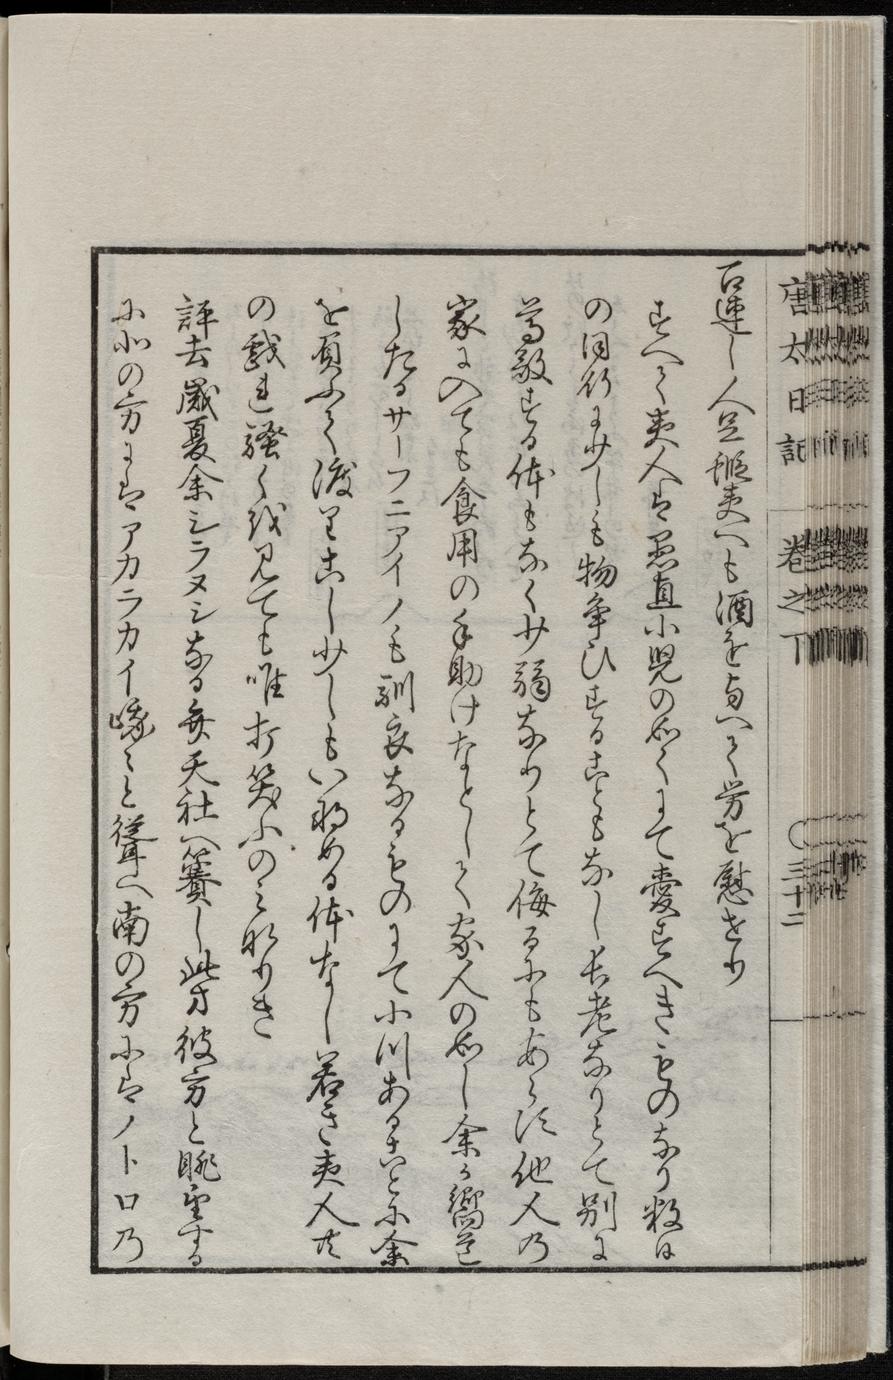 唐太日記 巻之下 三十二
召連し人足縦夷へも酒を与へて労を慰せり
すへて夷人は愚直小児の如くにて愛すへきものなり数日
の同行に少しも物争ひすることもなし長老なりとて別に
尊敬する体もなく少弱なりとて侮るにもあらす他人の
家に入ても食用の手助けなとして家人の如し余か嚮導
したるサーフニアイノも馴良なるものにて小川あることに余
を負ふて渡りこし少しもいとめる体なし若き夷人共
の戯れ騒くを見ても唯打笑ふのみなりき
評去歳夏余シラヌシなる弁天社へ賽し此方彼方と眺望する
に北の方にはアカラカイ峨々と聳へ南の方にはノトロの